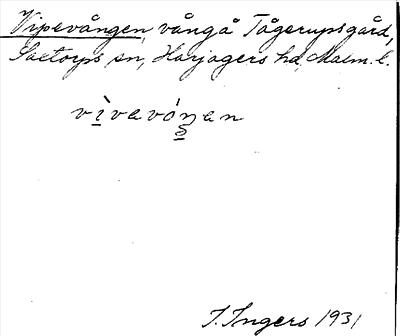 Vipevången, vång å Tågerupsgård,
Saxtorps sn, Harjagers hd, Malm. l.
vìvavóŋan
I. Ingers 1931